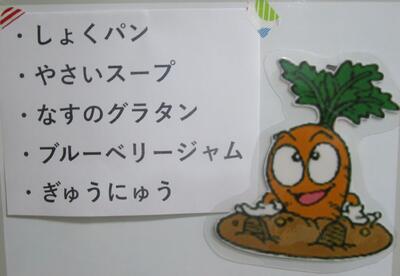 ・しょくパン
・やさいスープ
・なすのグラタン
・ブルーベリージャム
・ぎゅうにゅう